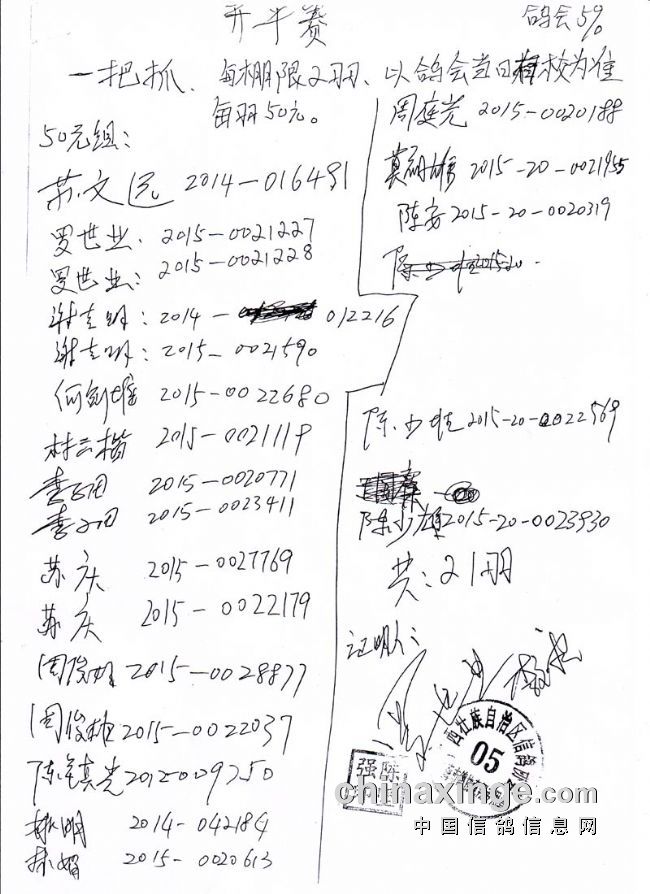 开平赛
鸽会5%
一把抓、每棚限2羽、以鸽会当日校为准
每羽50元。
50元组:
苏文 2014-016491
罗世业: 2015-0021227
罗世业: 2015-0021228
谢志明: 2014- 012216
谢志明: 2015-0021590
何剑雄 2015-0022680
林云楷 2015-0021119
2015-0020771
2015-0023411
苏庆 2015-0027769
苏庆 2015-0022179
周俊 2015-0028877
周俊 2015-0022037
陈镇光 2012-009750
林明 2014-042184
林娟 2015-0020613
周庭光 2015-0020188
莫 雄 2015-20-0021955
陈安 2015-20-0020319
陈少雄 2015-20-0022569
陈少雄 2015-20-0023930
共: 21羽
证明人:
西壮族自治区信鸽
05
强陈
chinaxinge.com
中国信鸽信息网